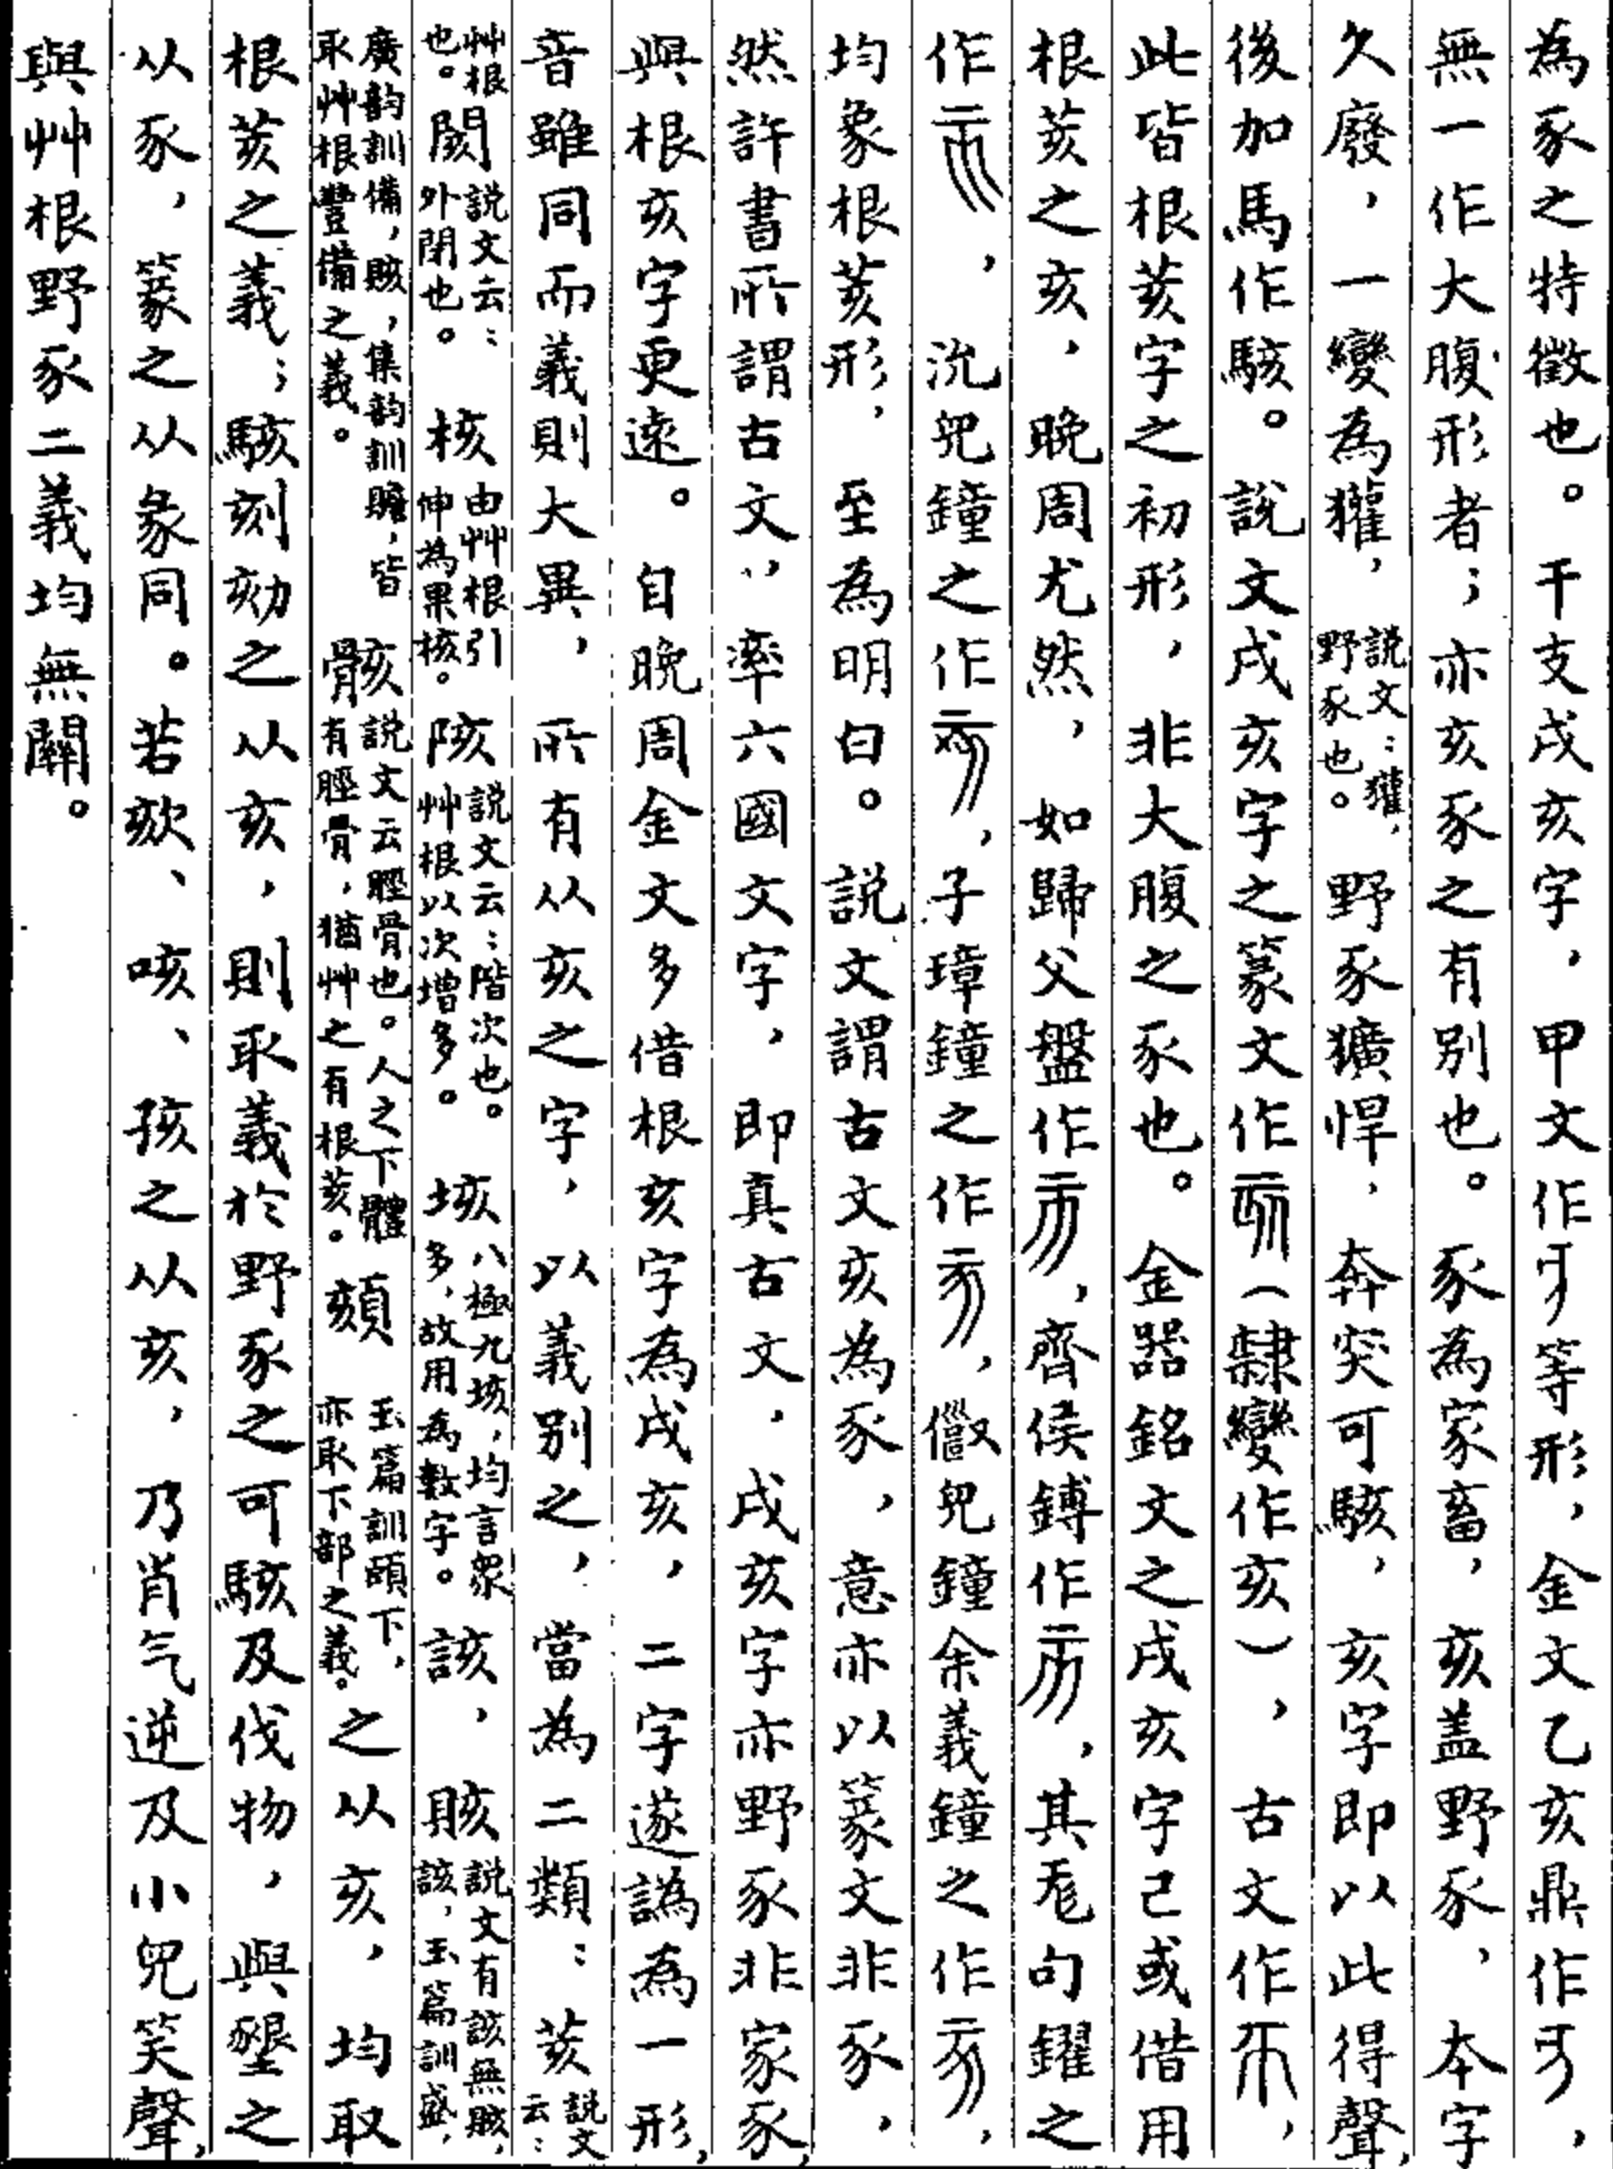 為豕之特徵也。干支戌亥字，甲文作等形，金文乙亥鼎作，
無一作大腹形者；亦亥豕之有別也。豕為家畜，亥盖野豕，本字
久廢，一變為獾，說文：獾，野豕也。野豕獷悍，奔突可駭，亥字即以此得聲，
後加馬作駭。說文戌亥字之篆文作（隸變作亥），古文作，
此皆根荄字之初形，非大腹之豕也。金器銘文之戌亥字已或借用
根荄之亥，晚周尤然，如歸父盤作，齊侯鎛作，其句鑃之
作，沇兒鐘之作，子璋鐘之作，兒鐘余義鐘之作，
均象根荄形，至為明白。說文謂古文亥為豕，意亦以篆文非豕，
然許書所謂古文，率六國文字，即真古文，戌亥字亦野豕非家豕，
與根亥字更遠。自晚周金文多借根亥字為戌亥，二字遂譌為一形，
音雖同而義則大異，所有从亥之字，以義別之，當為二類：荄說文云：
艸根也。閡說文云：外閉也。核由艸根引伸為果核。陔說文云：階次也。艸根以次增多。垓八極九垓，均言眾多，故用為數字。該，賅說文有該無賅，該，玉篇訓盛，
廣韵訓備，賅，集韵訓贍，皆取艸根豐備之義。骸說文云脛骨也。人之下體有脛骨，猶艸之有根荄。頦玉篇訓頤下，亦取下部之義。之从亥，均取
根荄之義；駭刻劾之从亥，則取義於野豕之可駭及伐物，與墾之
从豕，篆之从彖同。若欬、咳、孩之从亥，乃肖气逆及小兒笑聲，
與艸根野豕二義均無關。